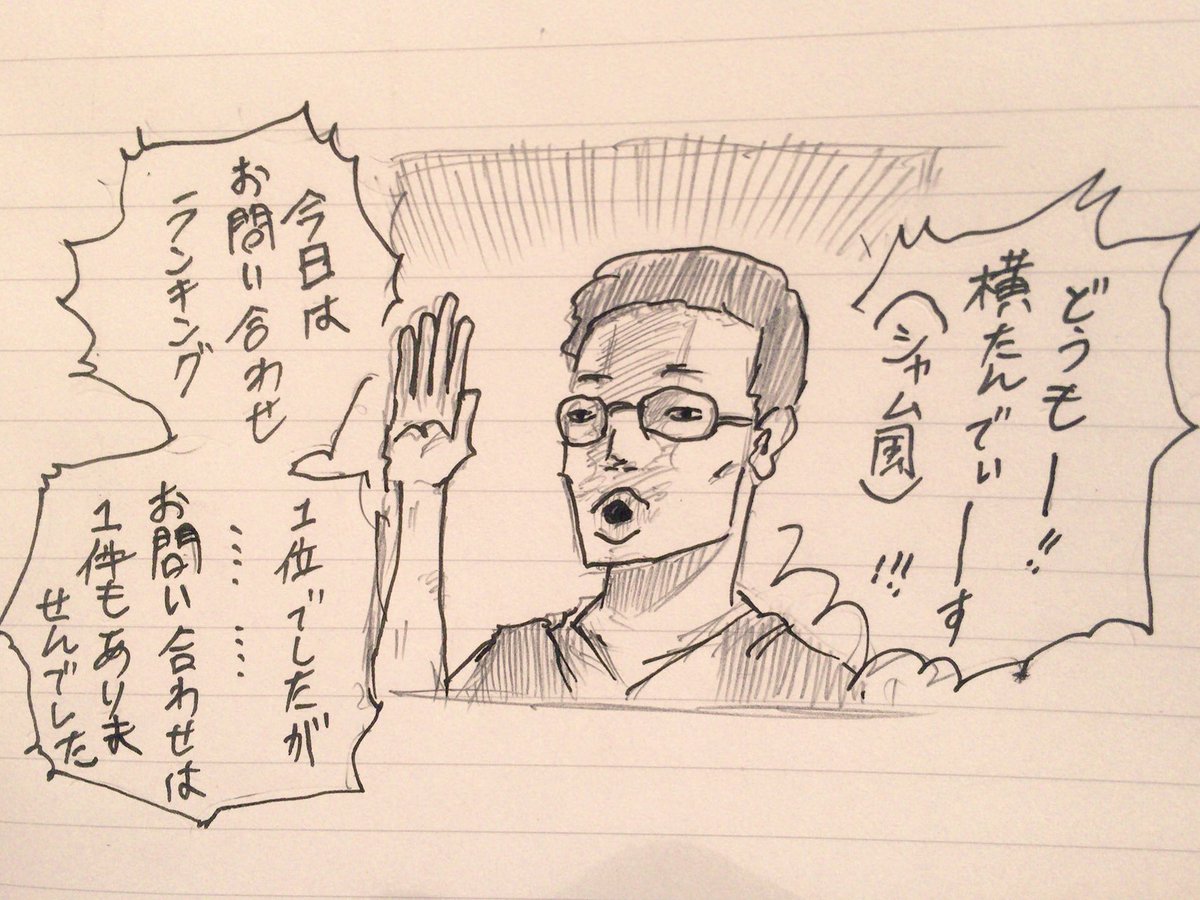 どうもー!!
横たんでぃーす
(シャム国)
!!!
今日は
お問い合わせ
ランキング
1位でしたが
…………
お問い合わせは
1件もありま
せんでした